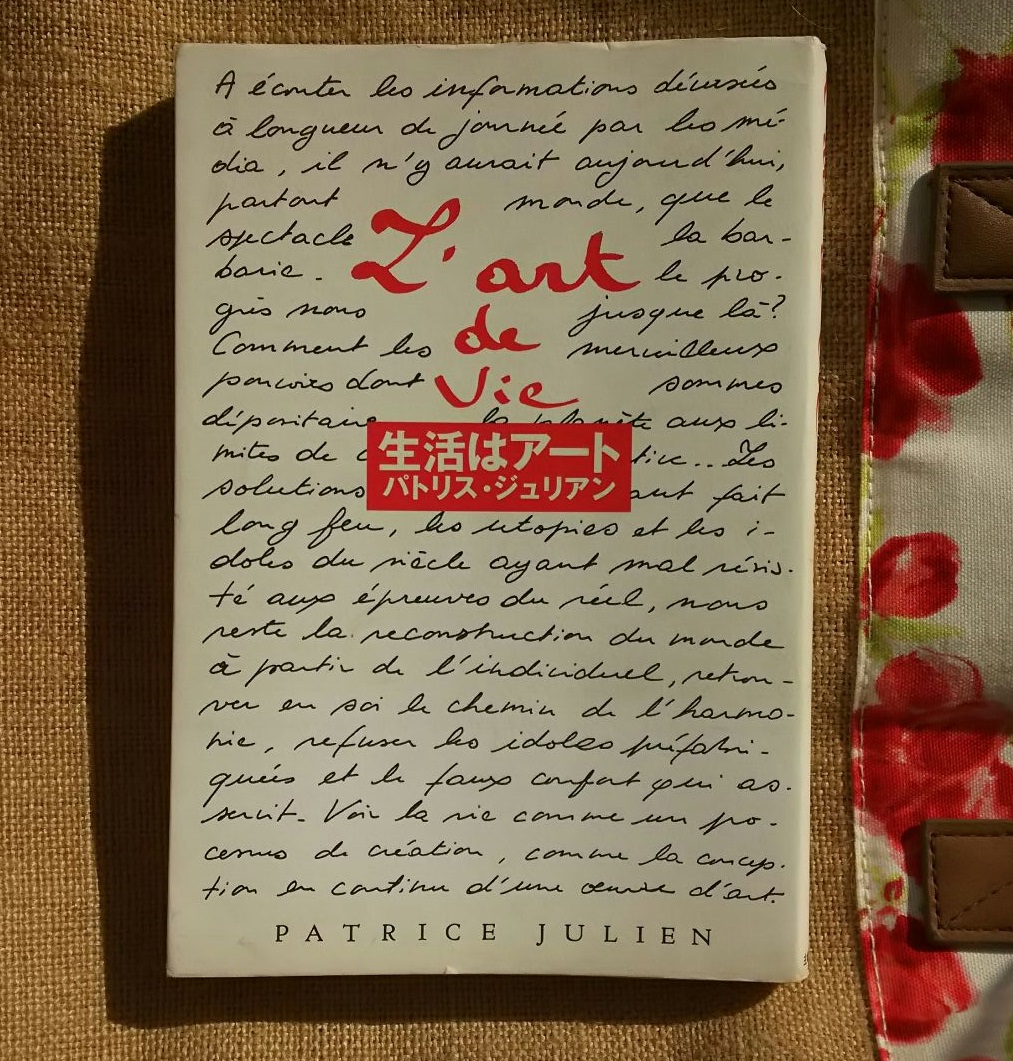 A écouter les informations déversées
à longueur de journée par les mé-
dia, il n'y aurait aujourd'hui,
partout monde, que le
spectacle la bar-
barie. le pro-
grès nous jusque là?
Comment les merveilleux
pouvoirs dont sommes
dépositaire la planète aux li-
mites de tive... Les
solutions ant fait
long feu, les utopies et les i-
doles du siècle ayant mal résis-
té aux épreuves du réel, nous
reste la reconstruction du monde
à partir de l'individuel, retrou-
ver en soi le chemin de l'harmo-
nie, refuser les idoles préfabri-
quées et le faux confort qui as-
servit. Voir la vie comme un pro-
cessus de création, comme la concep-
tion en continu d'une œuvre d'art.
L'art
de
Vie
生活はアート
パトリス・ジュリアン
PATRICE JULIEN